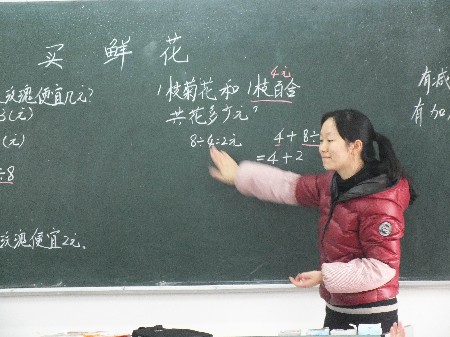 买鲜花
玫瑰便宜几元?
(元)
(元)
÷8
玫瑰便宜2元。
4元
1枝菊花和1枝百合
共花多少元?
8÷4=2元
4+8÷
=4+2
有减
有加